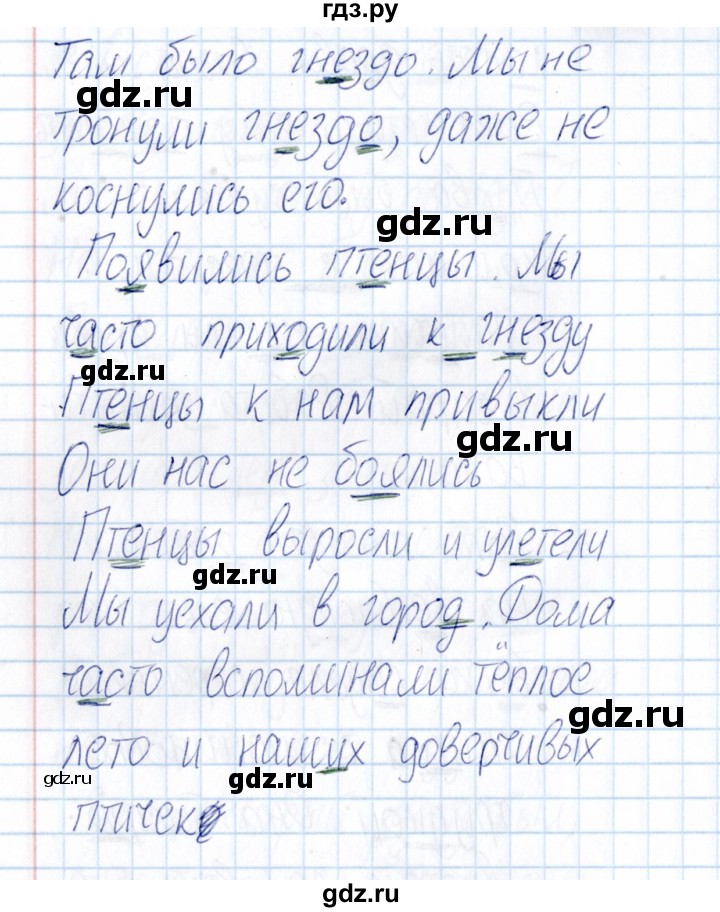 гдз.ру
Там было гнездо. Мы не
gdz.ru
тронули гнездо, даже не
коснулись его.
gdz.ru
Появились птенцы. Мы
часто приходили к гнезду
gdz.ru
Птенцы к нам привыкли
gdz.ru
Они нас не боялись
Птенцы выросли и улетели
gdz.ru
Мы уехали в город. Дома
часто вспоминали тёплое
gdz.ru
лето и наших доверчивых
gdz.ru gdz.ru
птичек
gdz.ru